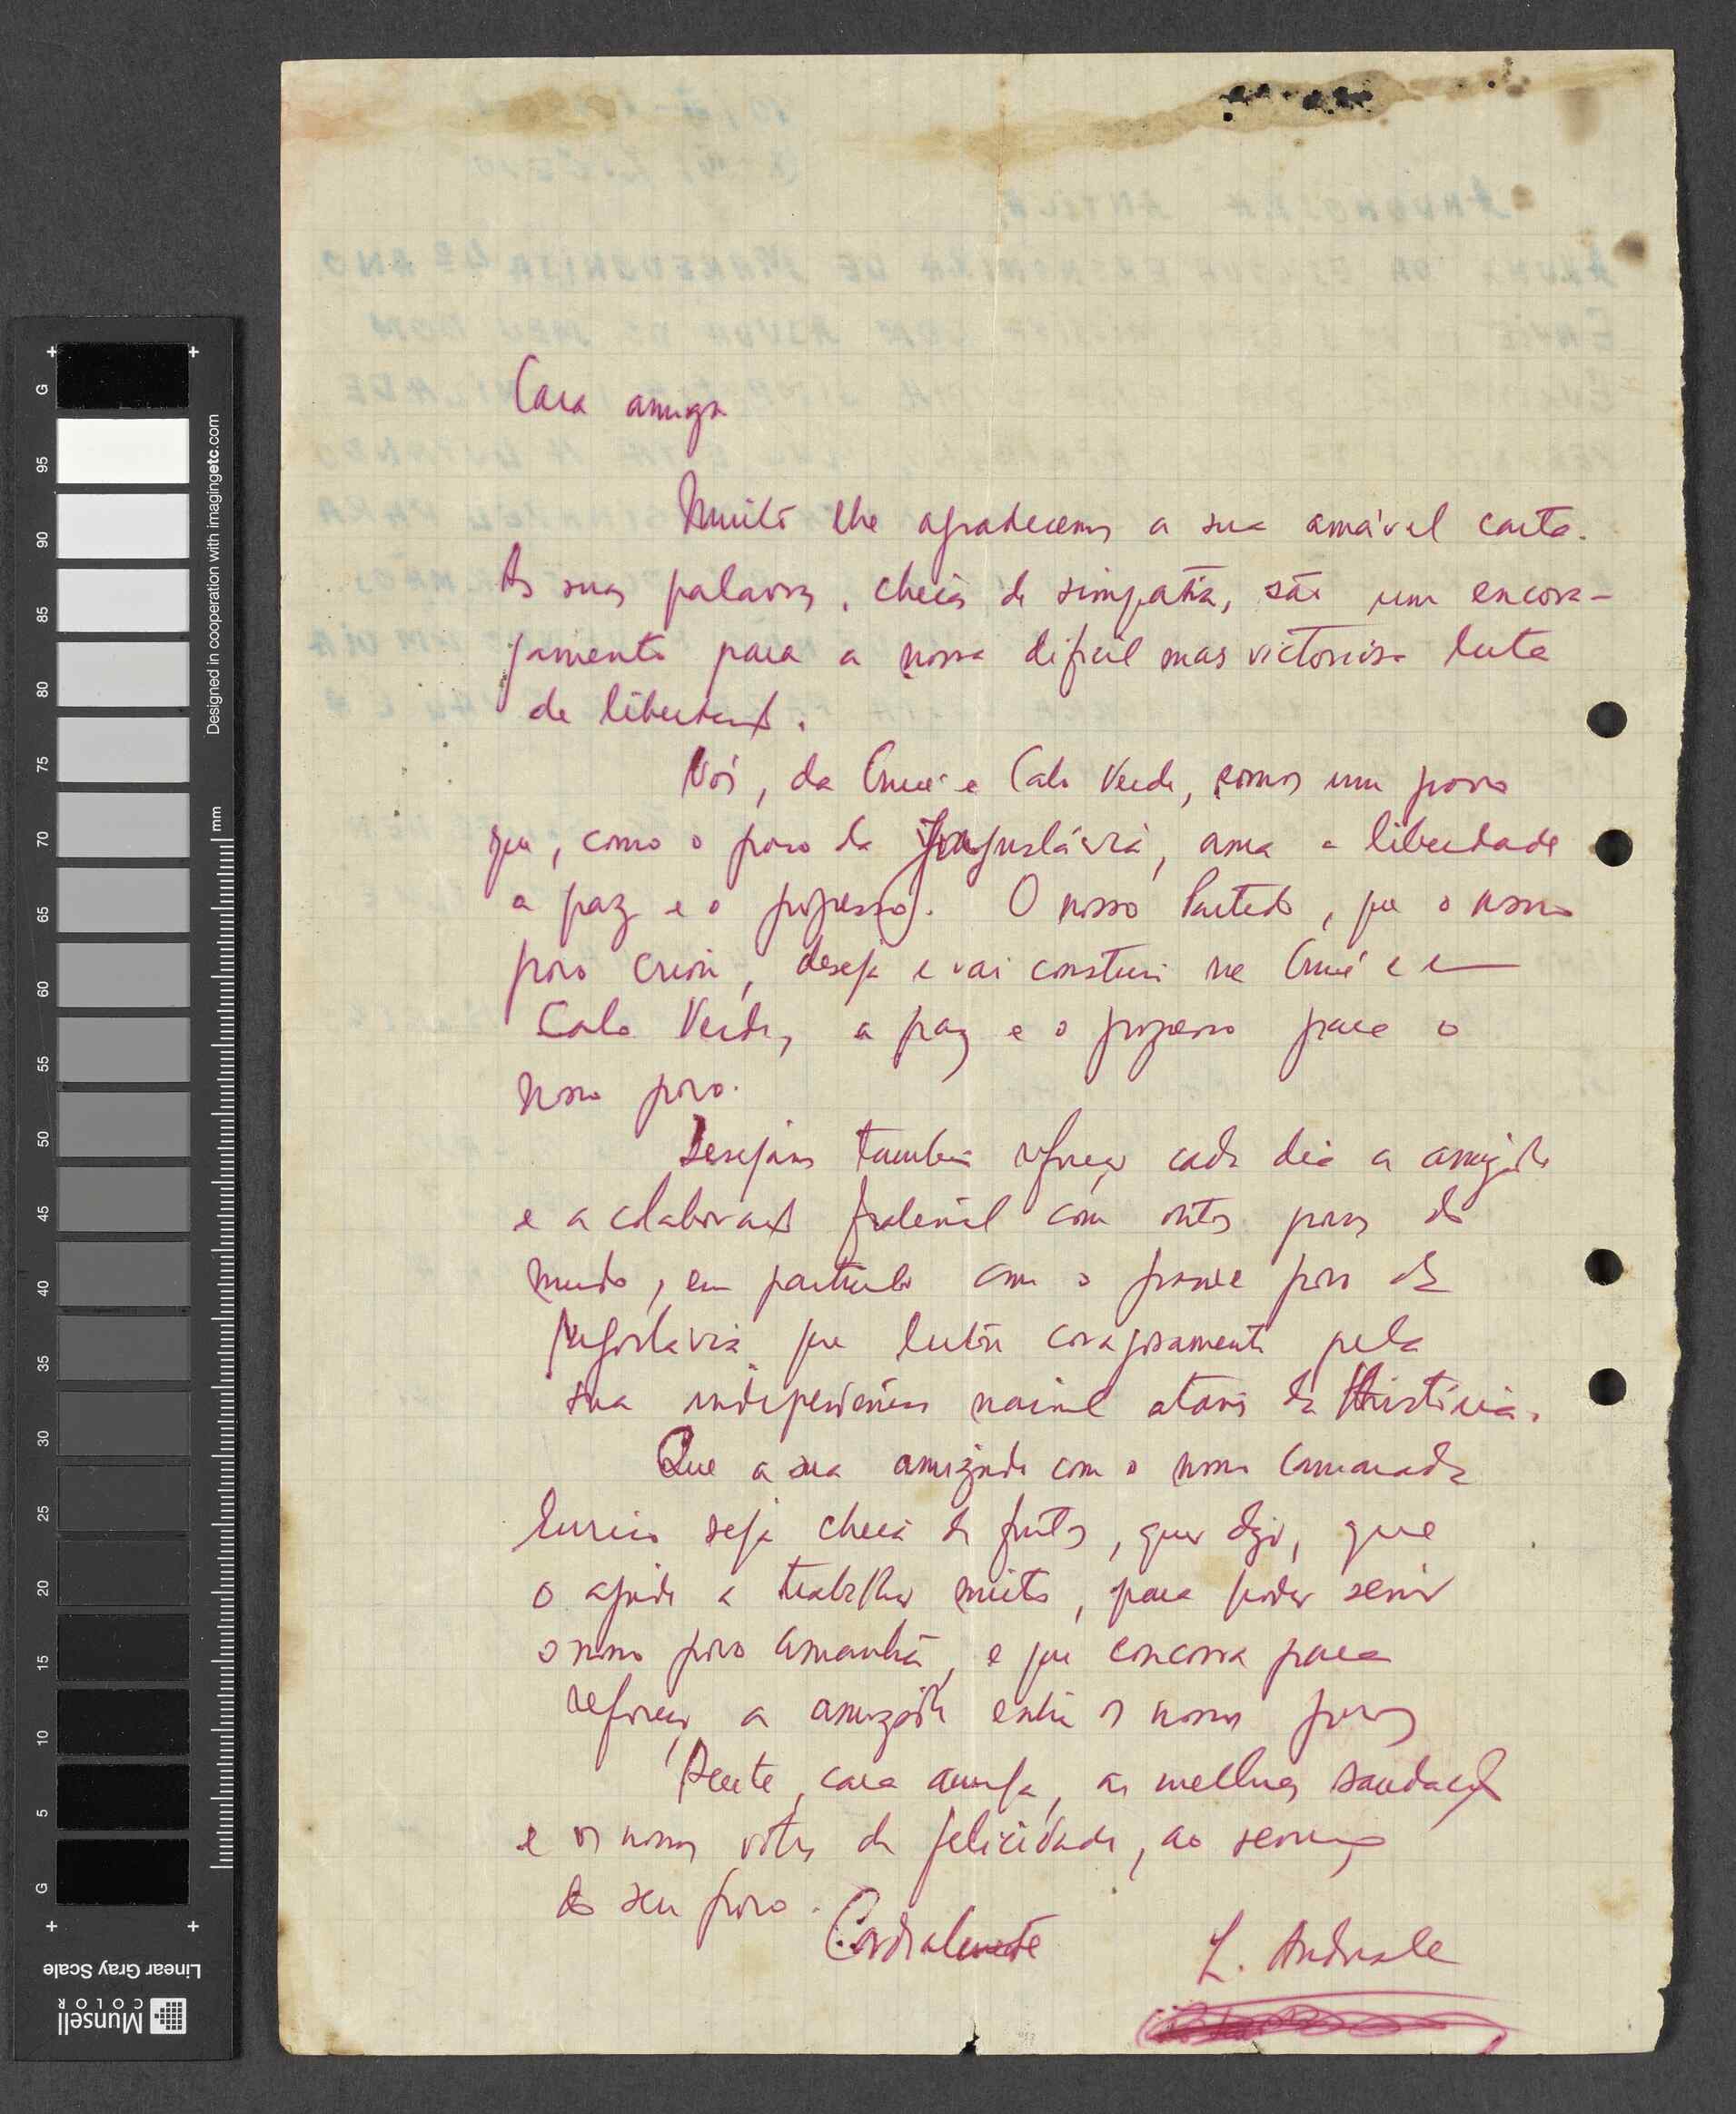 Cara amiga
Muito lhe agradecemos a sua amável carta.
As suas palavras, cheias de simpatia, são um encora-
jamento para a nossa difícil mas victoriosa luta
de libertação.
Nós, da Guiné e Cabo Verde, somos um povo
que, como o povo da Juguslávia, ama a liberdade
a paz e o progresso. O nosso Partido, que o nosso
povo criou, deseja e vai construir na Guiné e em
Cabo Verde, a paz e o progresso para o
nosso povo.
Desejamos também reforçar cada dia a amizade
e a colaboração fraternal com outros povos do
mundo, em particular com o povo da
Jugoslavia que lutou corajosamente pela
sua independência nacional através da História.
Que a sua amizade com o nosso camarada
seja cheia de frutos, quer dizer, que
o ajude a trabalhar muito, para poder servir
o nosso povo amanhã, e que concorra para
reforçar a amizade entre os nossos povos
Aceite, cara amiga, as melhores saudações
e os nossos votos de felicidade, ao serviço
do seu povo.
Cordialmente L. Andrade
Designed in cooperation with imagingetc.com
mm
G 95 90 85 80 75 70 65 60 55 50 45 40 35 30 25 20 15 10 5 G
Linear Gray Scale
Munsell
COLOR